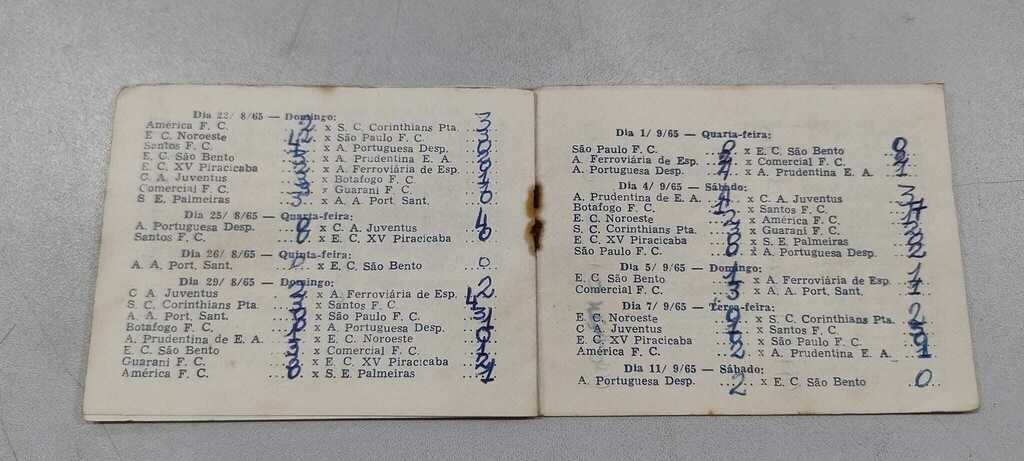 Dia 22/ 8/65 — Domingo:
América F. C. 2 x S. C. Corinthians Pta. 3
E. C. Noroeste x São Paulo F. C.
Santos F. C. x A. Portuguesa Desp.
E. C. São Bento x A. Prudentina E. A.
E. C. XV Piracicaba x A. Ferroviária de Esp.
C. A. Juventus x Botafogo F. C.
Comercial F. C. x Guarani F. C.
S. E. Palmeiras 3 x A. A. Port. Sant. 0
Dia 25/ 8/65 — Quarta-feira:
A. Portuguesa Desp. x C. A. Juventus 4
Santos F. C. x E. C. XV Piracicaba 0
Dia 26/ 8/65 — Quinta-feira:
A. A. Port. Sant. 0 x E. C. São Bento 0
Dia 29/ 8/65 — Domingo:
C A. Juventus 2 x A. Ferroviária de Esp. 2
S. C. Corinthians Pta. x Santos F. C. 4
A. A. Port. Sant. x São Paulo F. C.
Botafogo F. C. x A. Portuguesa Desp.
A. Prudentina de E. A. x E. C. Noroeste
E. C. São Bento x Comercial F. C.
Guarani F. C. x E. C. XV Piracicaba
América F. C. 0 x S. E. Palmeiras 1
Dia 1/ 9/65 — Quarta-feira:
São Paulo F. C. x E. C. São Bento 0
A. Ferroviária de Esp. x Comercial F. C.
A. Portuguesa Desp. x A. Prudentina E. A. 1
Dia 4/ 9/65 — Sábado:
A. Prudentina de E. A. x C. A. Juventus 3
Botafogo F. C. 1 x Santos F. C.
E. C. Noroeste x América F. C.
S. C. Corinthians Pta. x Guarani F. C.
E. C. XV Piracicaba x S. E. Palmeiras
São Paulo F. C. 0 x A. Portuguesa Desp. 2
Dia 5/ 9/65 — Domingo:
E. C. São Bento 1 x A. Ferroviária de Esp. 1
Comercial F. C. 3 x A. A. Port. Sant. 1
Dia 7/ 9/65 — Terça-feira:
E. C. Noroeste 0 x S. C. Corinthians Pta. 2
C A. Juventus x Santos F. C.
E. C. XV Piracicaba x São Paulo F. C.
América F. C. 2 x A. Prudentina E. A. 1
Dia 11/ 9/65 — Sábado:
A. Portuguesa Desp. 2 x E. C. São Bento 0